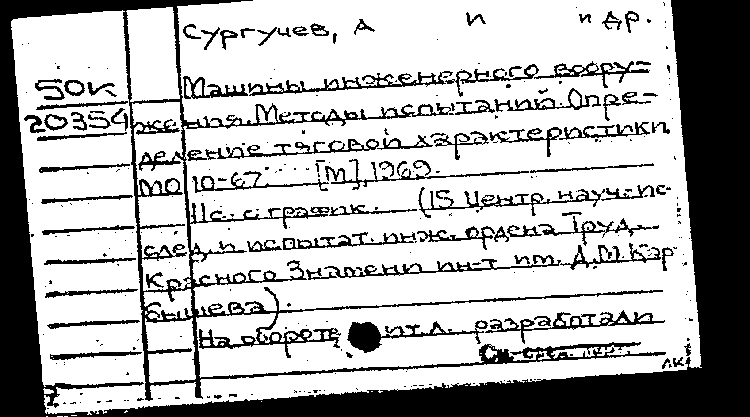 Сургучев, А п и др.
50к Машины инженерного воору-
20354 жения. Методы испытаний. Опре-
деление тяговой характеристики
МО 10-67. [М], 1969.
11с. с график. (15 Центр. науч.-ис-
след. и испытат. инж. ордена Труд.
Красного Знамени ин-т им. Д.М. Кар
бышева).
На обороте тит. л. разработали
лк